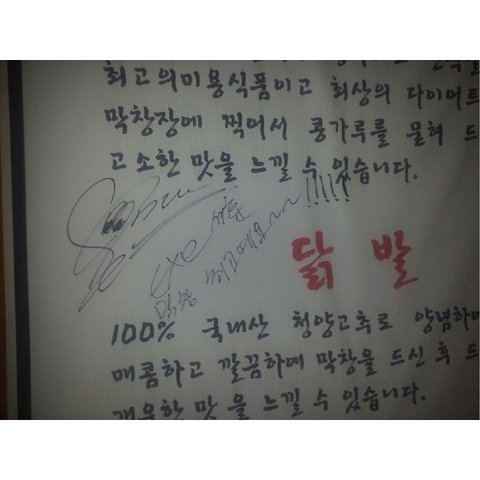 최고의미용식품이고 최상의 다이어트
막창장에 찍어서 콩가루를 묻혀 드
고소한 맛을 느낄 수 있습니다.
exo 세훈
막창 최고예요~~!!!!!
닭 발
100% 국내산 청양고추로 양념하여
매콤하고 깔끔하며 막창을 드신 후 드
개운한 맛을 느낄 수 있습니다.